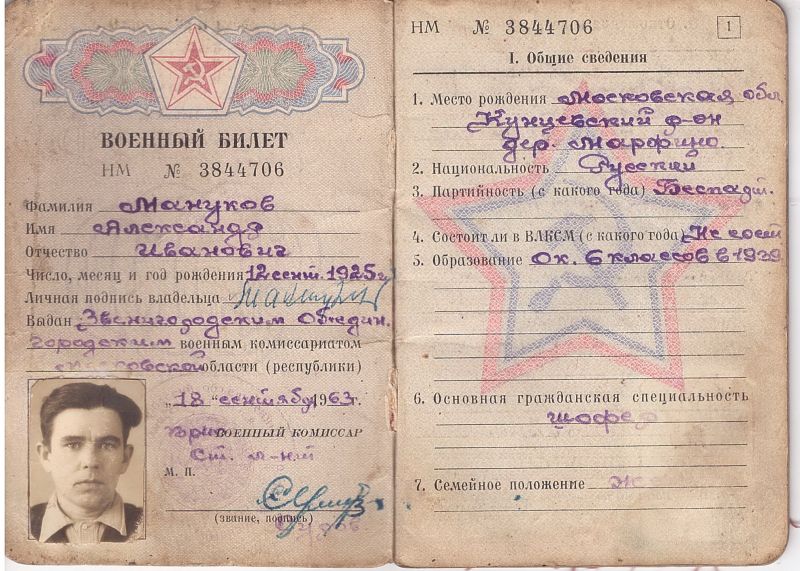 ВОЕННЫЙ БИЛЕТ
НМ № 3844706
Фамилия Мануков
Имя Александр
Отчество Иванович
Число, месяц и год рождения 12 сент. 1925 г.
Личная подпись владельца
Выдан Звенигородским Объедин.
городским военным комиссариатом
Московской области (республики)
„18" сентября 1963 г.
ВОЕННЫЙ КОМИССАР
ст. л-нт
М. П.
(звание, подпись)
НМ № 3844706
1
I. Общие сведения
1. Место рождения Московская обл,
Кунцевский р-он
дер. Марфино.
2. Национальность Русский
3. Партийность (с какого года) Беспарт.
4. Состоит ли в ВЛКСМ (с какого года) Не сост
5. Образование Ок. 6 классов в 1939
6. Основная гражданская специальность
шофер
7. Семейное положение